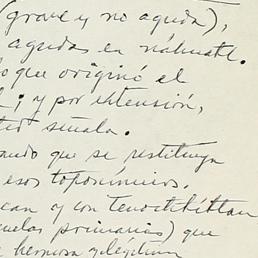 (grave y no aguda),
agudas en náhuatl.
lo que originó el
; y por extensión,
señala.
ando que se restituya
esos toponímicos.
can y con Tenochtitlan
uelas primarias) que
hermosa y legítima